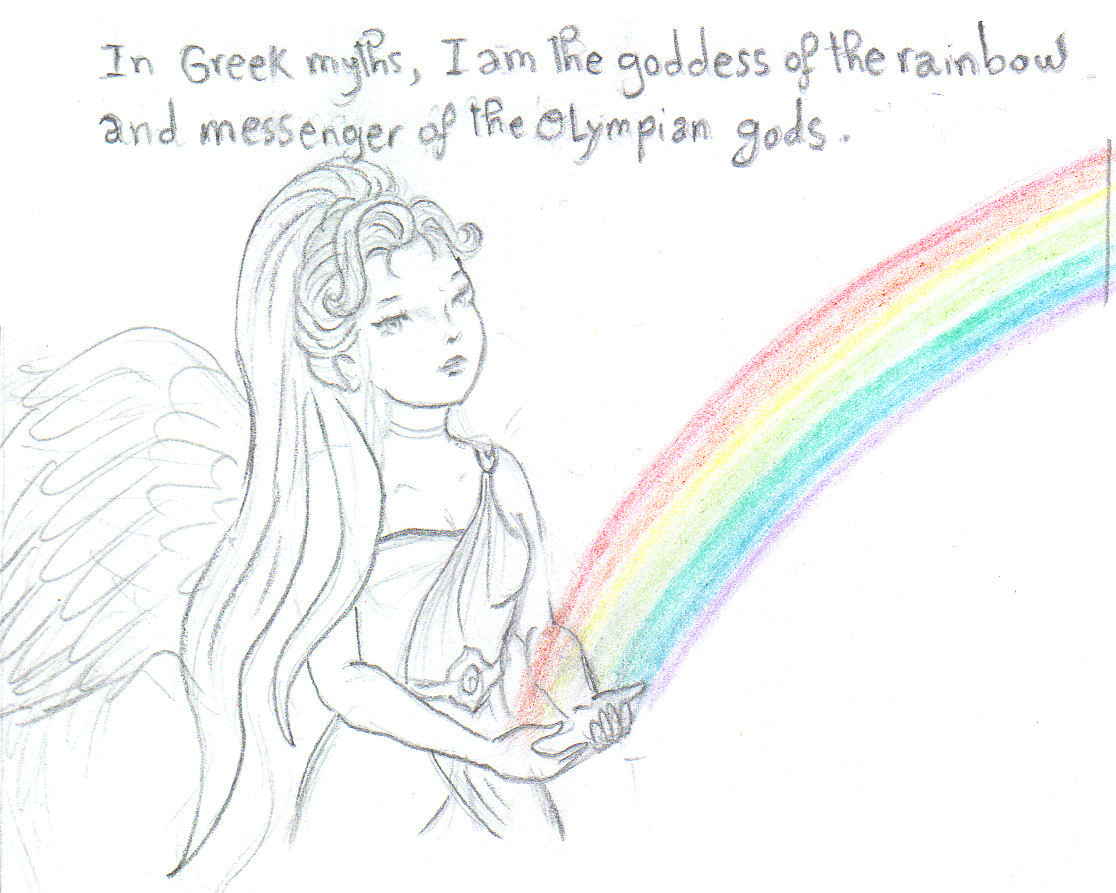 In Greek myths, I am the goddess of the rainbow
and messenger of the Olympian gods.